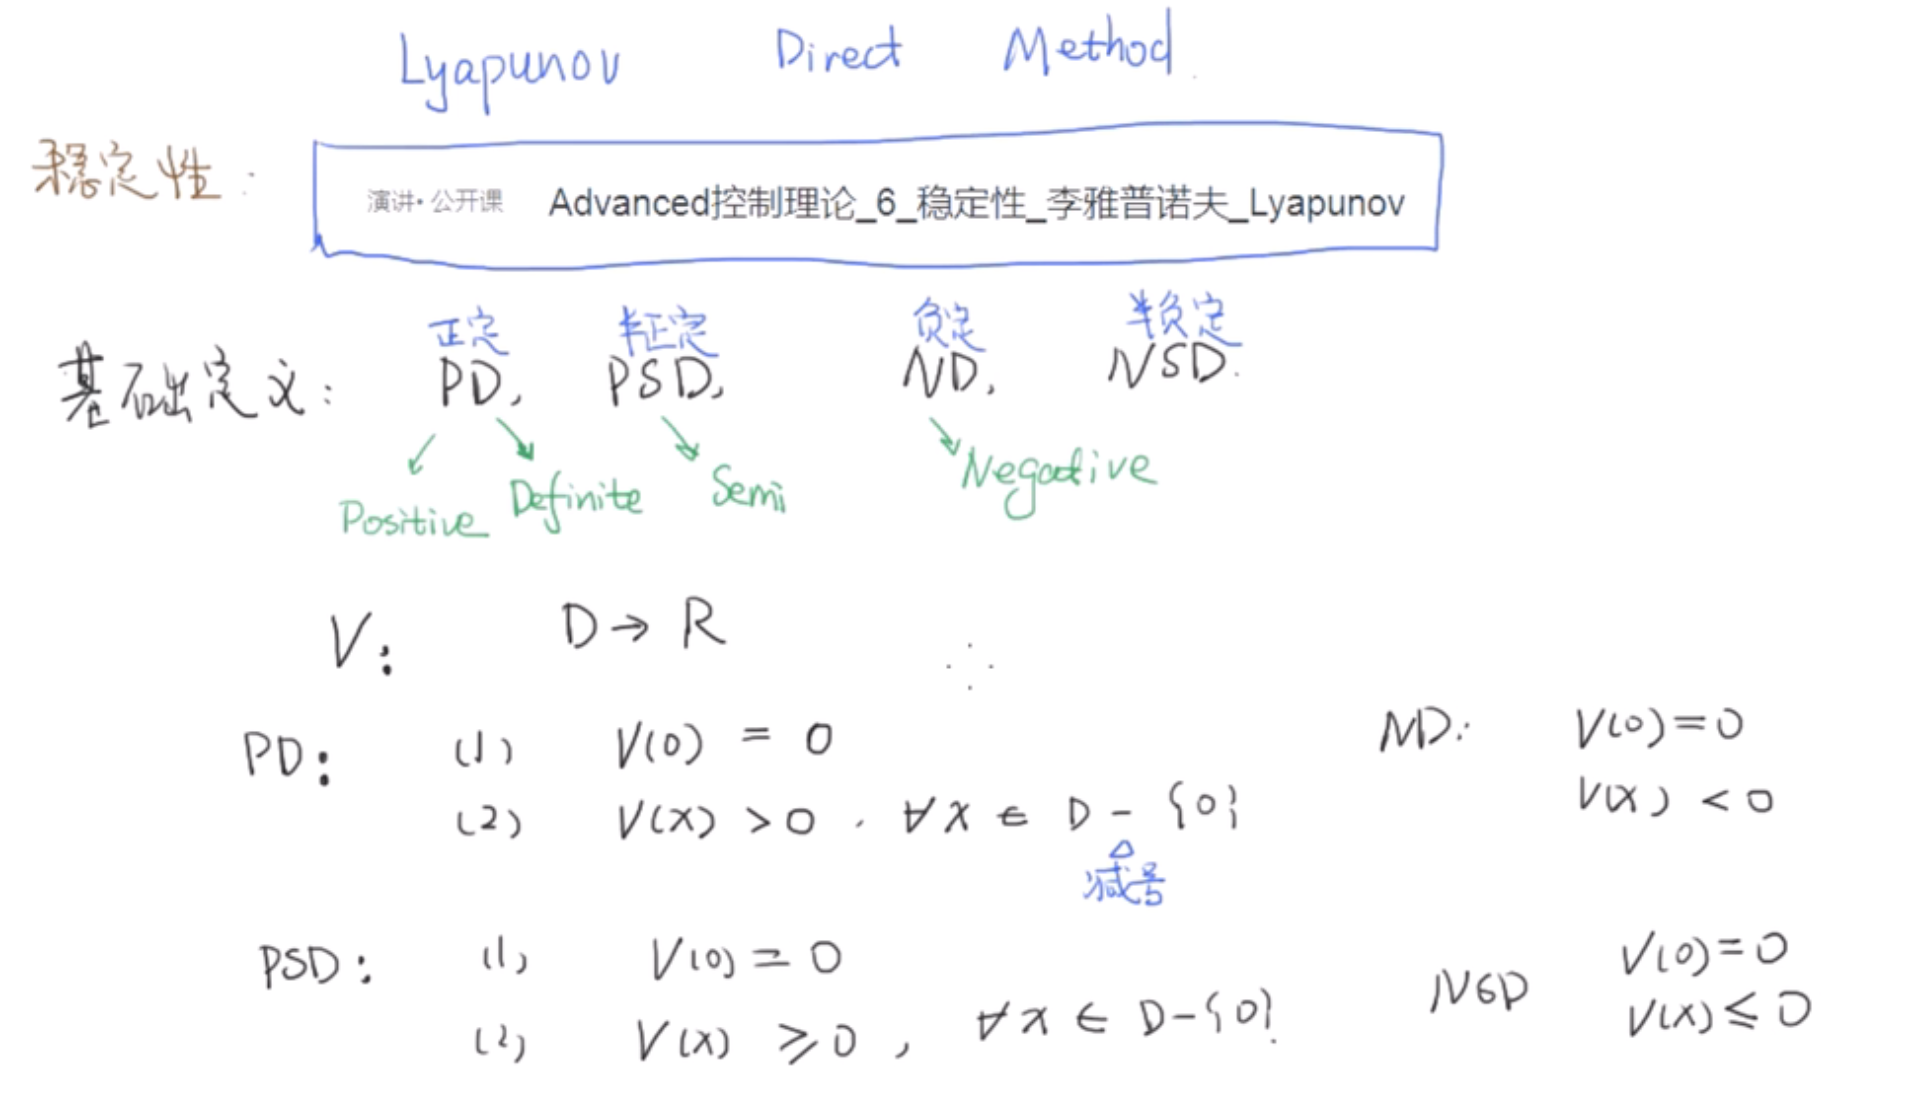 Lyapunov Direct Method
稳定性:
演讲· 公开课 Advanced控制理论_6_稳定性_李雅普诺夫_Lyapunov
正定 半正定 负定 半负定
基础定义: PD, PSD, ND, NSD.
Positive Definite Semi Negative
V: D → R
PD: (1) V(0) = 0
(2) V(x) > 0 , ∀x ∈ D - {0}
减号
ND: V(0) = 0
V(x) < 0
PSD: (1) V(0) = 0
(2) V(x) ≥ 0 , ∀x ∈ D-{0}
NSD V(0) = 0
V(x) ≤ 0